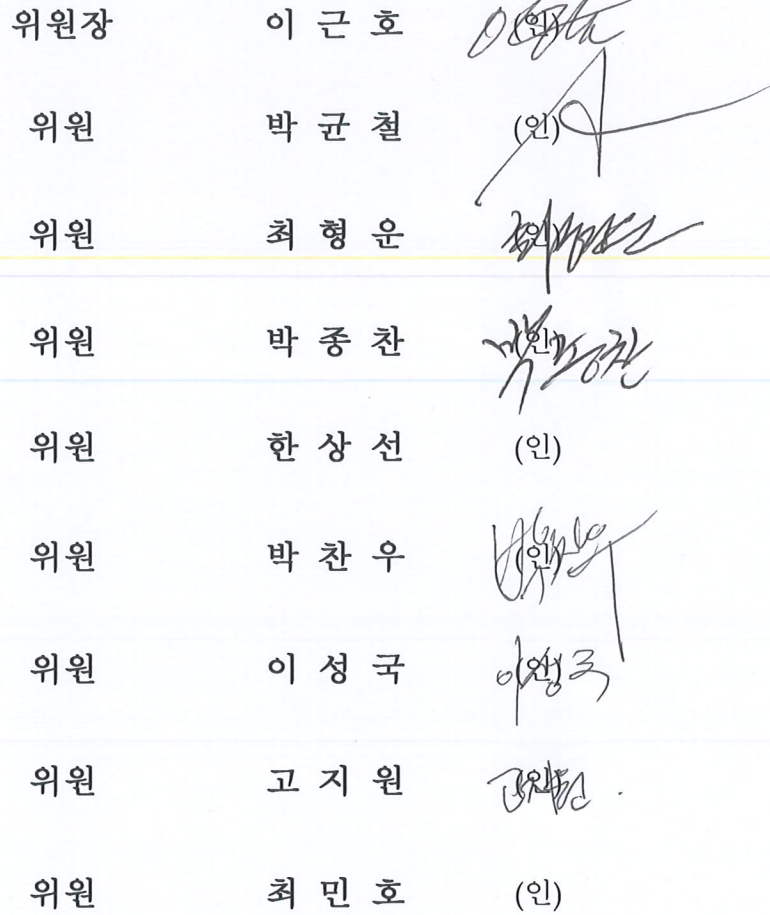 위원장 이 근 호 (인)
위원 박 균 철 (인)
위원 최 형 운 (인)
위원 박 종 찬 (인)
위원 한 상 선 (인)
위원 박 찬 우 (인)
위원 이 성 국 (인)
위원 고 지 원 (인)
위원 최 민 호 (인)